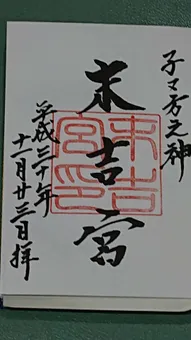 子之方之神
末吉宮
末吉宮印
平成三十年
十一月廿三日拝